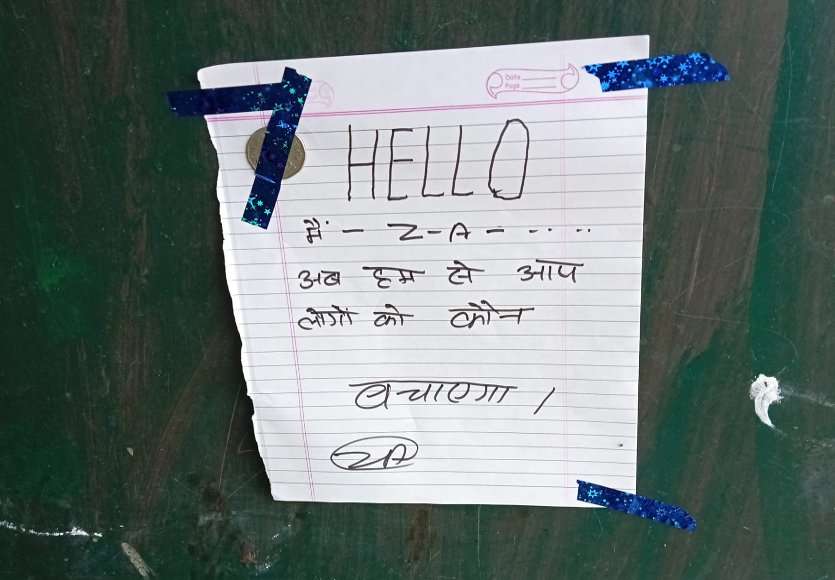 Date
Page
HELLO
मैं - Z-A- - ....
अब हम से आप
लोगों को कौन
बचाएगा /
ZA